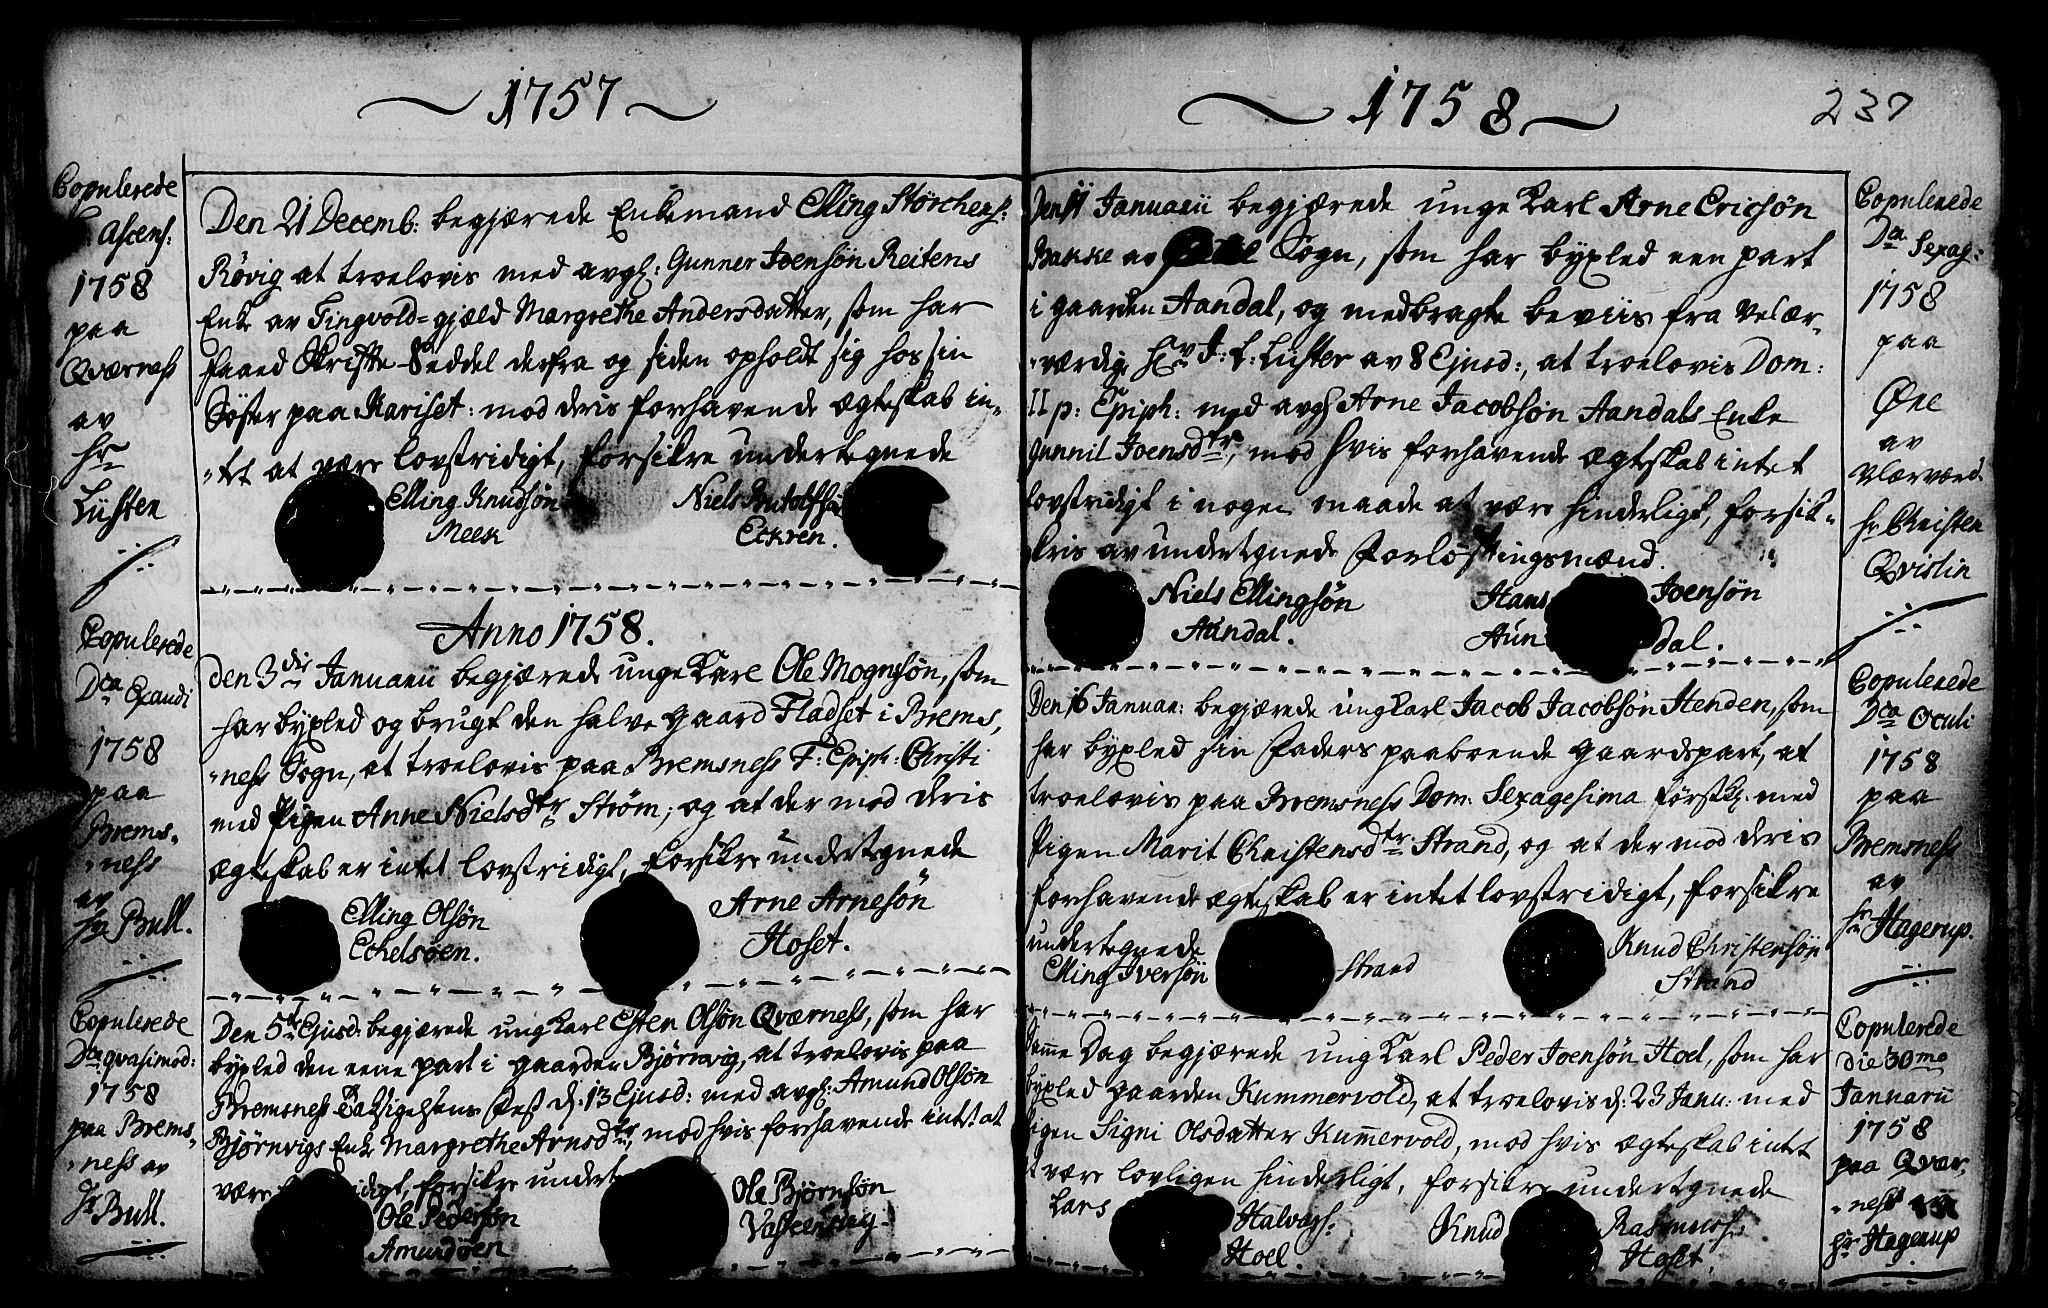 1757
Copulerede
Ascens:
1758
paa
Qværness
av
Hr
Lüsten
Den 21 Decemb: begjærede Enkemand Elling Störchers:
Rövig at troelovis med avgl: Gunner Joensön Reitens
Enke av Tingvold-gjæld Margrethe Andersdatter, som har
faaed Skrifte-Seddel derfra og siden opholdt sig hos sin
Söster paa Kariset: mod deris forhavende ægteskab in-
"tet at være lovstridigt, forsikre undertegnede
Elling Knudsön
Meek
Niels
Eckren.
Anno 1758.
Copulerede
Dca Exaudi
1758
paa
Brems-
"ness
av
Hr Bull.
Den 3die Januarii begjærede unge Karl Ole Mognsön, som
har byxled og brugt den halve gaard Fladset i Brems,
"ness Sogn, at troelovis paa Bremsness F: Epiph: Christi
med Pigen Anne Nielsdtr Ström; og at der mod deris
ægteskab er intet lovstridigt, forsikre undertegnede
Elling Olsön
Eckelsöen.
Arne Arnesön
Hoset.
Copulerede
Dca qvasimod:
1758
paa Brems-
"ness av
Hr Bull.
Den 5te Ejusd: begjærede ung Karl Esten Olsön Qværness, som har
byxled den eene part i gaarden Björnvig, at troelovis paa
Bremsness Taksigelsens Fest d: 13 Ejusd: med avgl: Amund Olsön
Björnvigs Enke Margrethe Arnsdtr, mod hvis forhavende intet at
være forsikre
Ole Pedersön
Amundöen
Ole Björnsön
1758
237
Den 11 Januarii begjærede unge Karl Arne Ericsön
Bakke av Sogn, som har byxled een part
i gaarden Aandal, og medbragte beviis fra velær-
"værdige Hr J: L: Lüster av 8 Ejusd:, at troelovis Dom:
II p: Epiph: med avgl Arne Jacobsön Aandals Enke
Gunnil Joensdtr, mod hvis forhavende ægteskab intet
lovstridigt i nogen maade at være hinderligt, forsik-
kris av undertegnede Forlöftningsmænd.
Niels Ellingsön
Aandal.
Hans Joensön
Aun dal.
Copulerede
Dca Sexag:
1758
paa
Öre
av
Vlærværd.
Hr Christen
Qvislin
Den 16 Januar: begjærede ung Karl Jacob Jacobsön Henden, som
har byxled sin Faders paaboende gaardspart, at
troelovis paa Bremsness Dom: Sexagesima förstk: med
Pigen Marit Christensdtr Strand, og at der mod deris
forhavende ægteskab er intet lovstridigt, forsikre
undertegnede
Elling Iversön Strand
Knud Christensön
Strand
Copulerede
Dca Oculi
1758
paa
Bremsness
av
Hr Hagerup.
Samme Dag begjærede ung Karl Peder Joensön Hoel, som har
byxled gaarden Kummervold, at troelovis d: 23 Janu: med
Pigen Signi Olsdatter Kum̅ervold, mod hvis ægteskab intet
at være lovligen hinderligt, forsikre undertegnede
Lars Halvors:
Hoel.
Knud Rasmuss:
Hoset.
Copulerede
die 30mo
Januarii
1758
paa Qvær-
"ness
Hr Hagerup